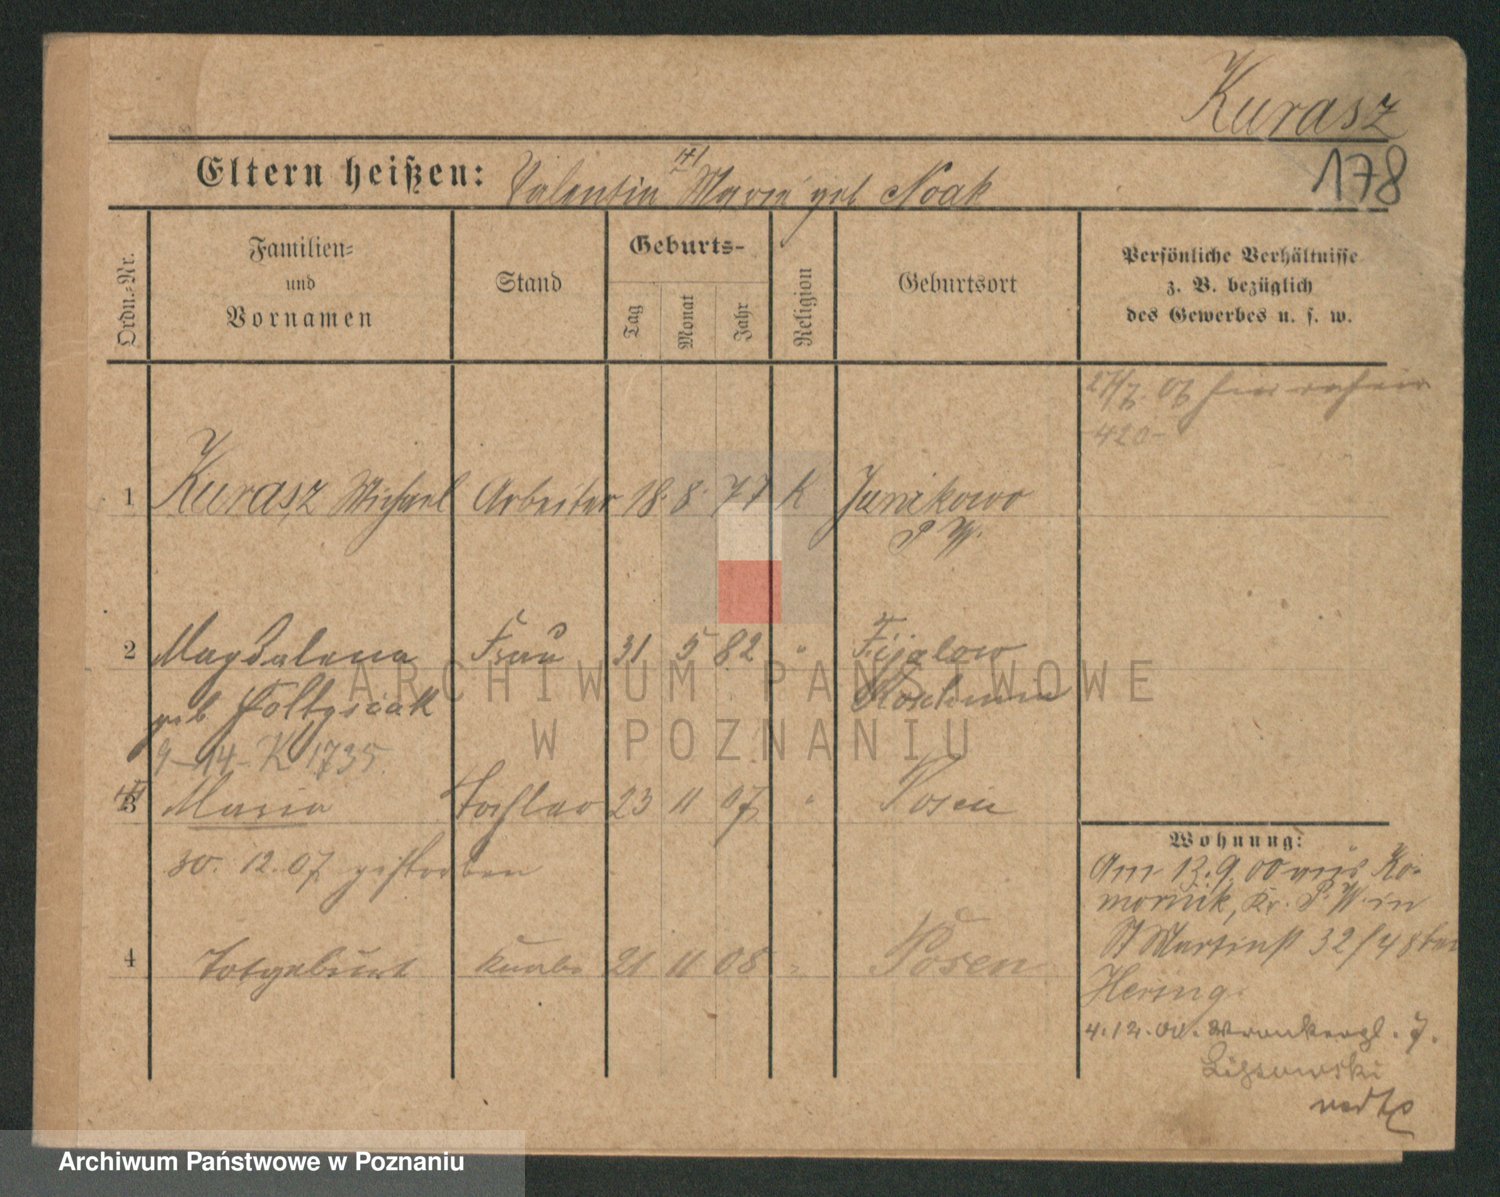 Kurasz
178
Eltern heißen: Valentin Marie geb Noak
Ordn.-Nr.
Familien-
und
Vornamen
Stand
Geburts-
Tag
Monat
Jahr
Religion
Geburtsort
Persönliche Verhältnisse
z. B. bezüglich
des Gewerbes u. s. w.
420-
1 Kurasz Michael Arbeiter 18 8 77 K Junikowo
P W.
2 Magdalena Frau 31 5 82 " Fijalow
geb Foltysiak Koschmin
9-14-K 1735
3 Maria Tochter 23 11 07 " Posen
30. 12. 07 gestorben
4 Totgeburt Knabe 21 11 08 " Posen
Wohnung:
Am 13.9.00 aus Ko-
mornik, Kr. P. W. in
St Martinst 32/48 bei
Hering.
4.12.00. Wronkergl. 7.
ARCHIWUM PAŃSTWOWE
W POZNANIU
Archiwum Państwowe w Poznaniu